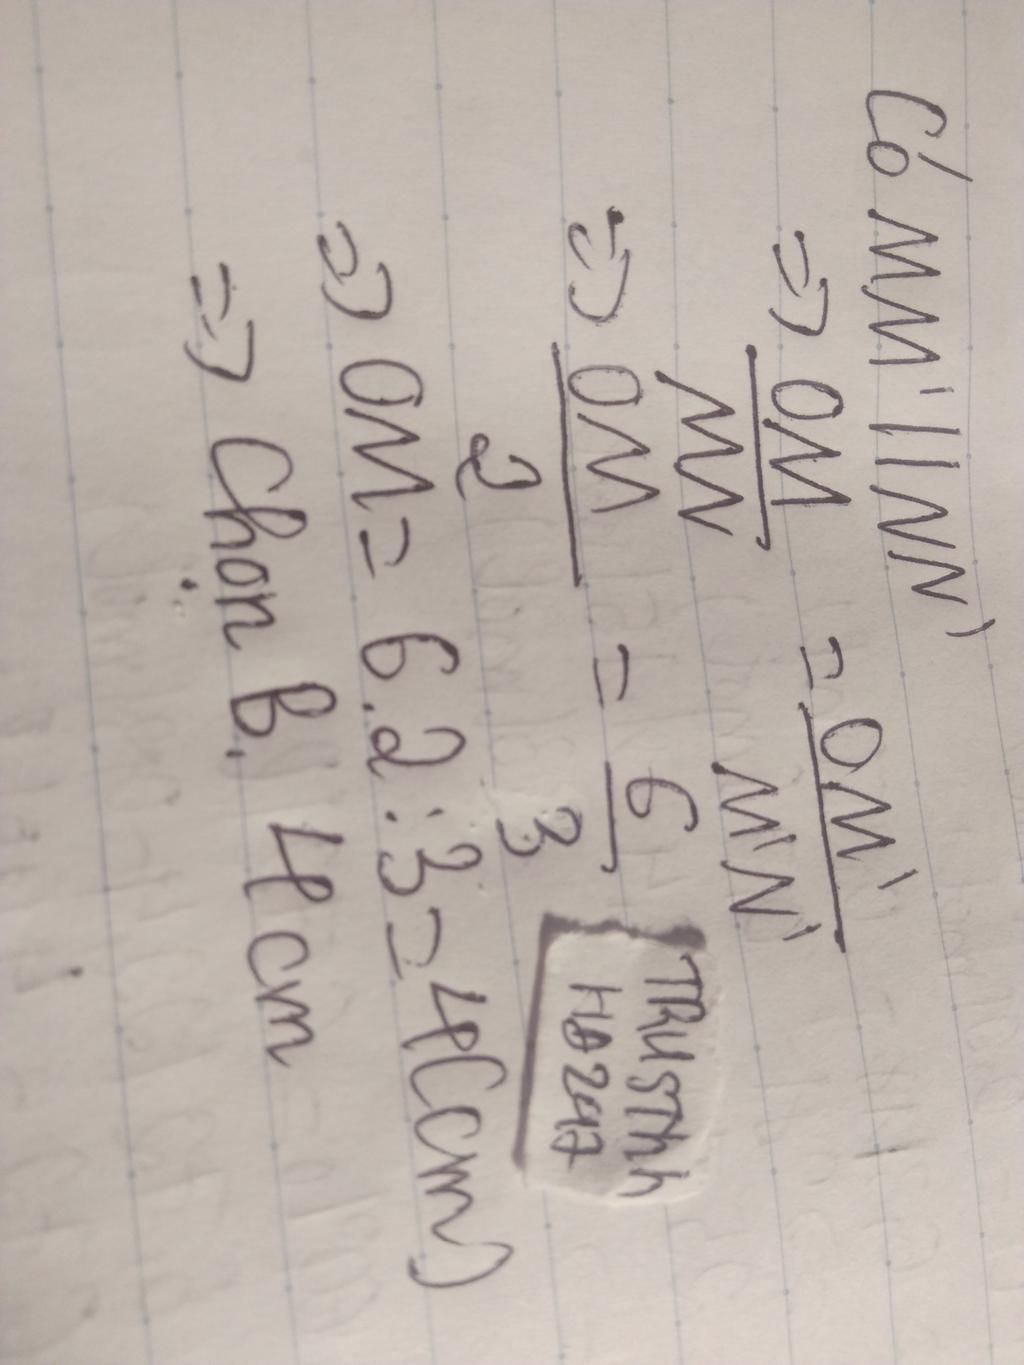 Có MM' // NN'
=> OM/MN = OM'/M'N'
=> OM/2 = 6/3
=> OM = 6.2:3 = 4(cm)
=> Chọn B. 4cm
TRUSThh